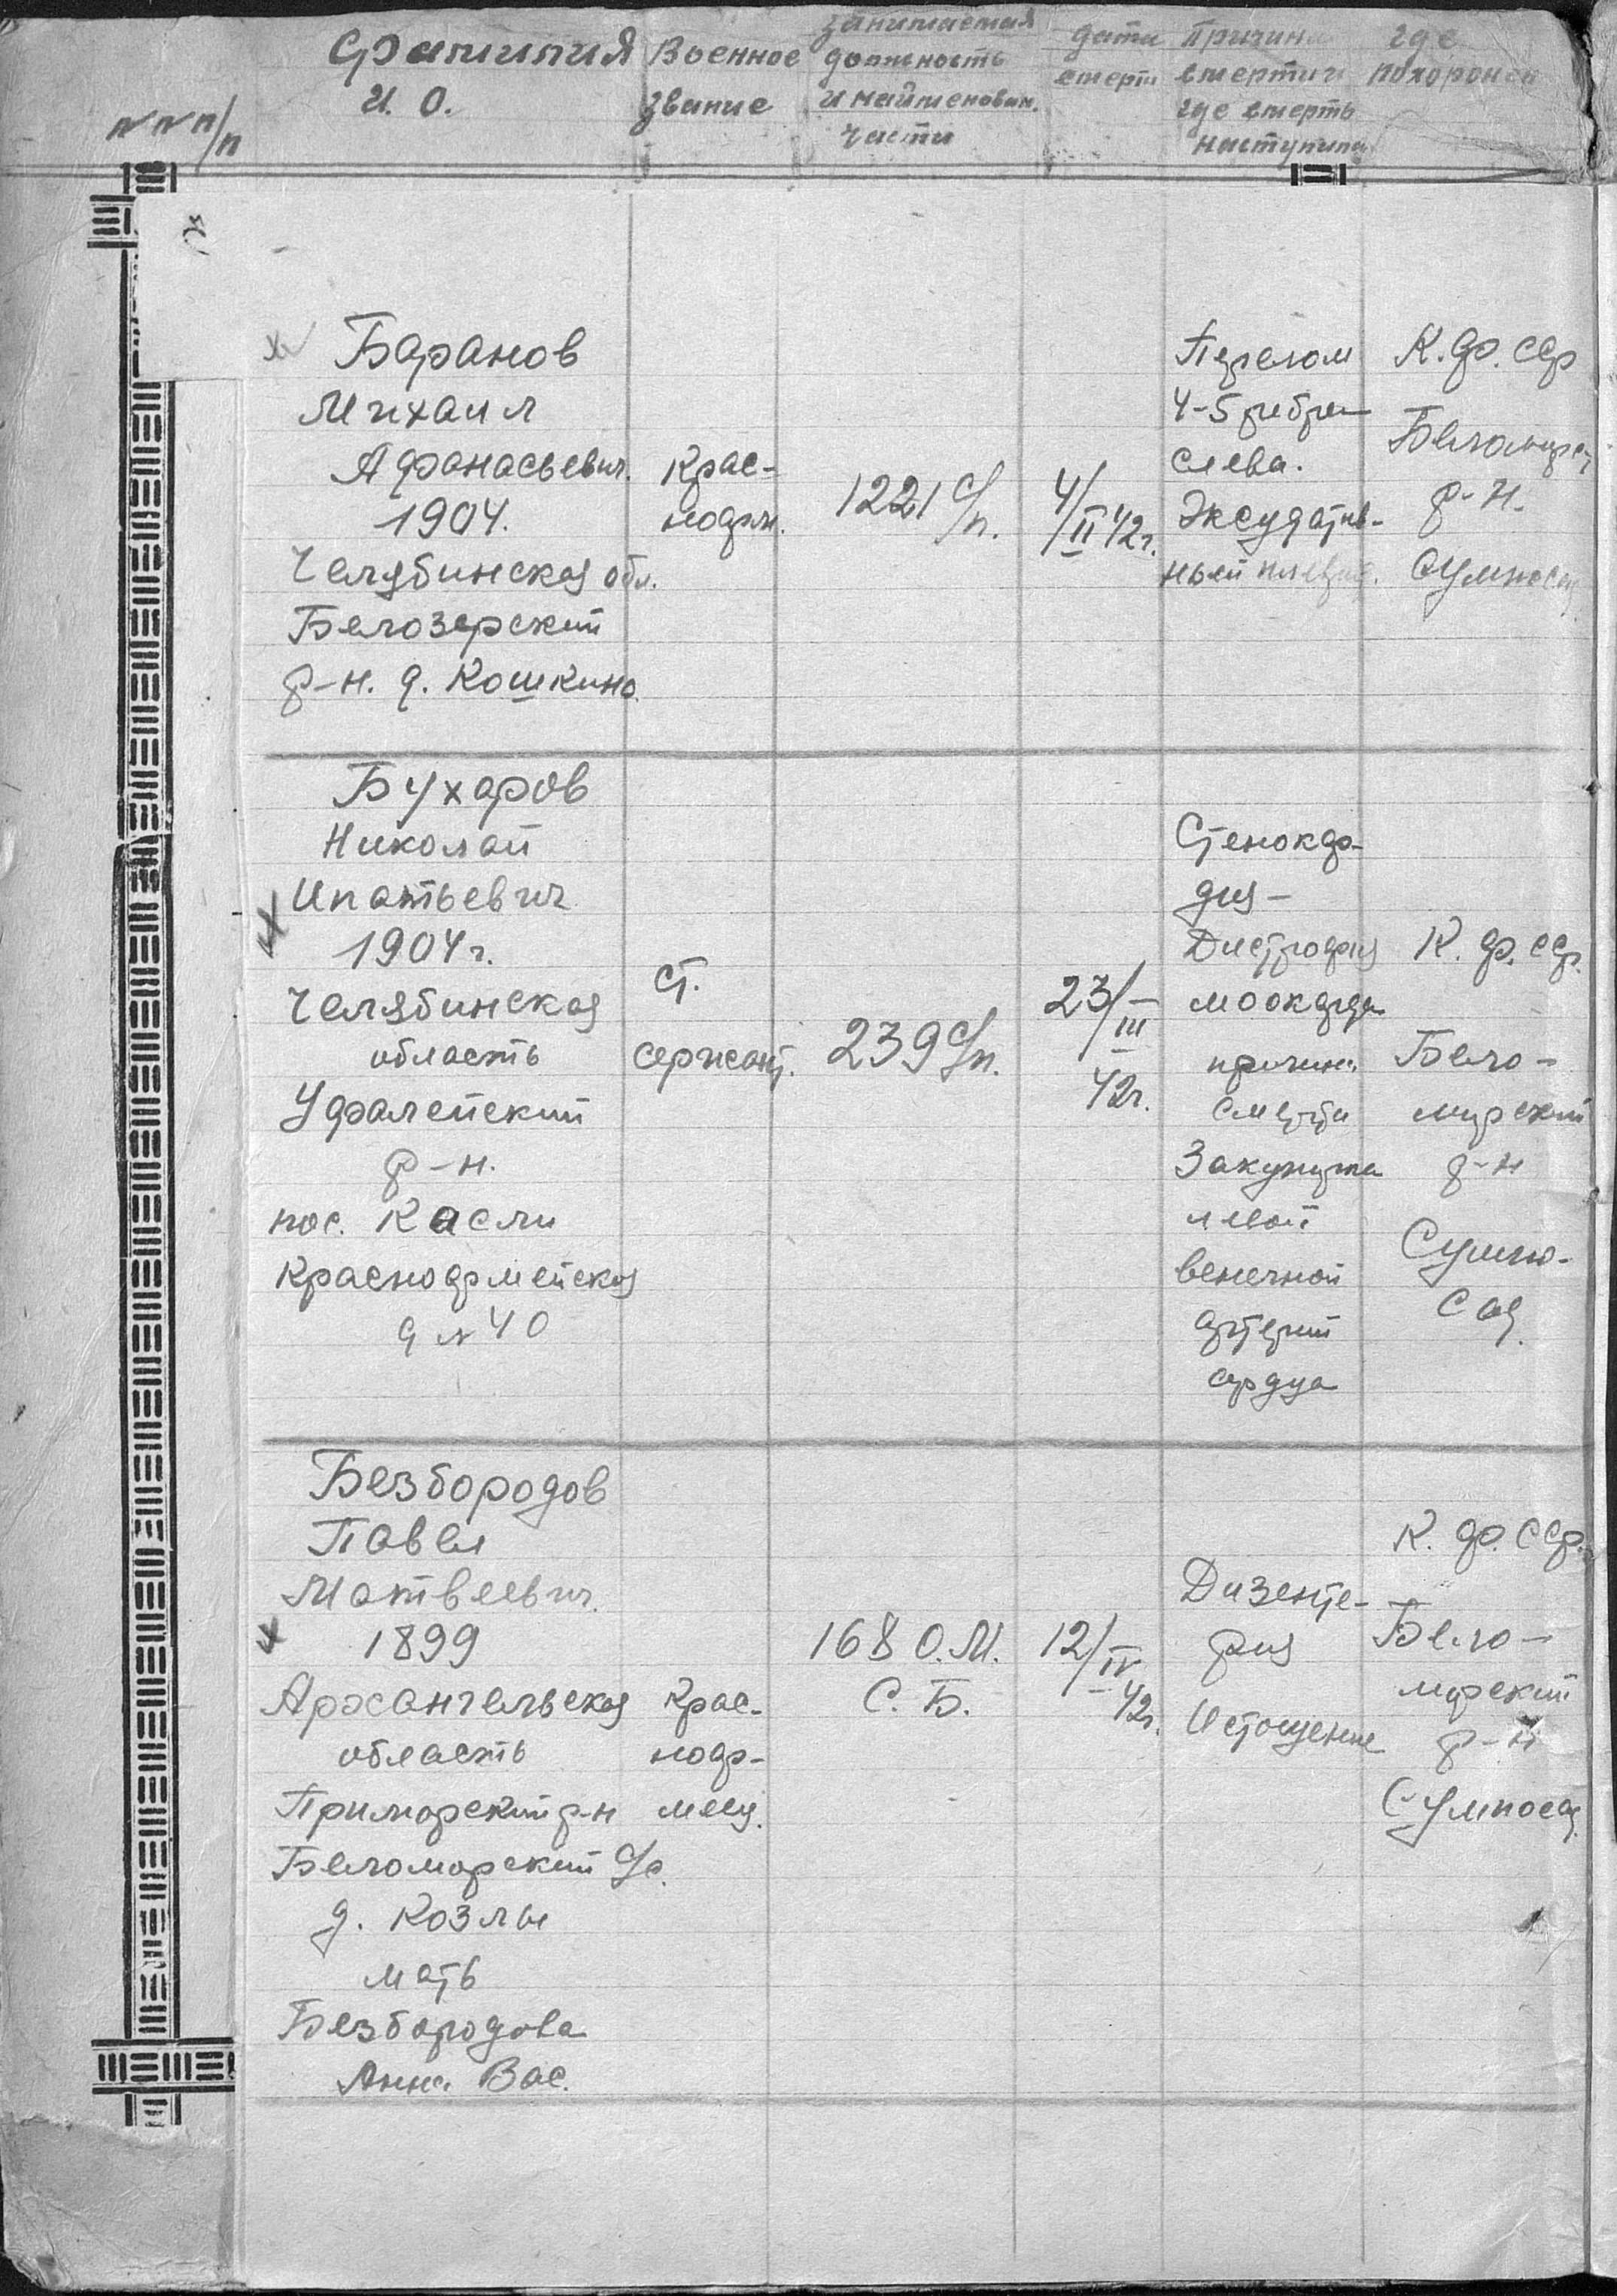 №№ п/п
Фамилия И. О.
Военное звание
занимаемая должность и наименован. части
дата смерти
Причина смерти и где смерть наступила
где похоронен
Баранов
Михаил
Афанасьевич.
1904.
Челябинская обл.
Белозерский
р-н. д. Кошкино
Крас-
ноарм.
1221 с/п.
4/II 42г.
Перелом
4-5 ребра
слева.
Эксудатив-
ный плеврит.
К.Ф. ССР
Беломорск
р-н.
Сумпосад
Бухаров
Николай
Ипатьевич
1904 г.
Челябинская
область
Уфалейский
р-н.
пос. Касли
Красноармейская
д № 40
Ст.
сержант.
239 с/п.
23/III
42г.
Стенокар-
дия-
Дистрофия
миокарда
причина
смерти
Закупорка
левой
венечной
артерии
сердца
К. Ф. ССР.
Бело-
морский
р-н
Сумпо-
сад.
Безбородов
Павел
Матвеевич.
1899
Архангельская
область
Приморский р-н
Беломорский с/с.
д. Козлы
мать
Безбородова
Анна Вас.
Крас-
ноар-
меец.
168 О.М.
С.Б.
12/IV
42г.
Дизенте-
рия
Истощение
К. Ф. ССР.
Бело-
морский
р-н
Сумпосад.